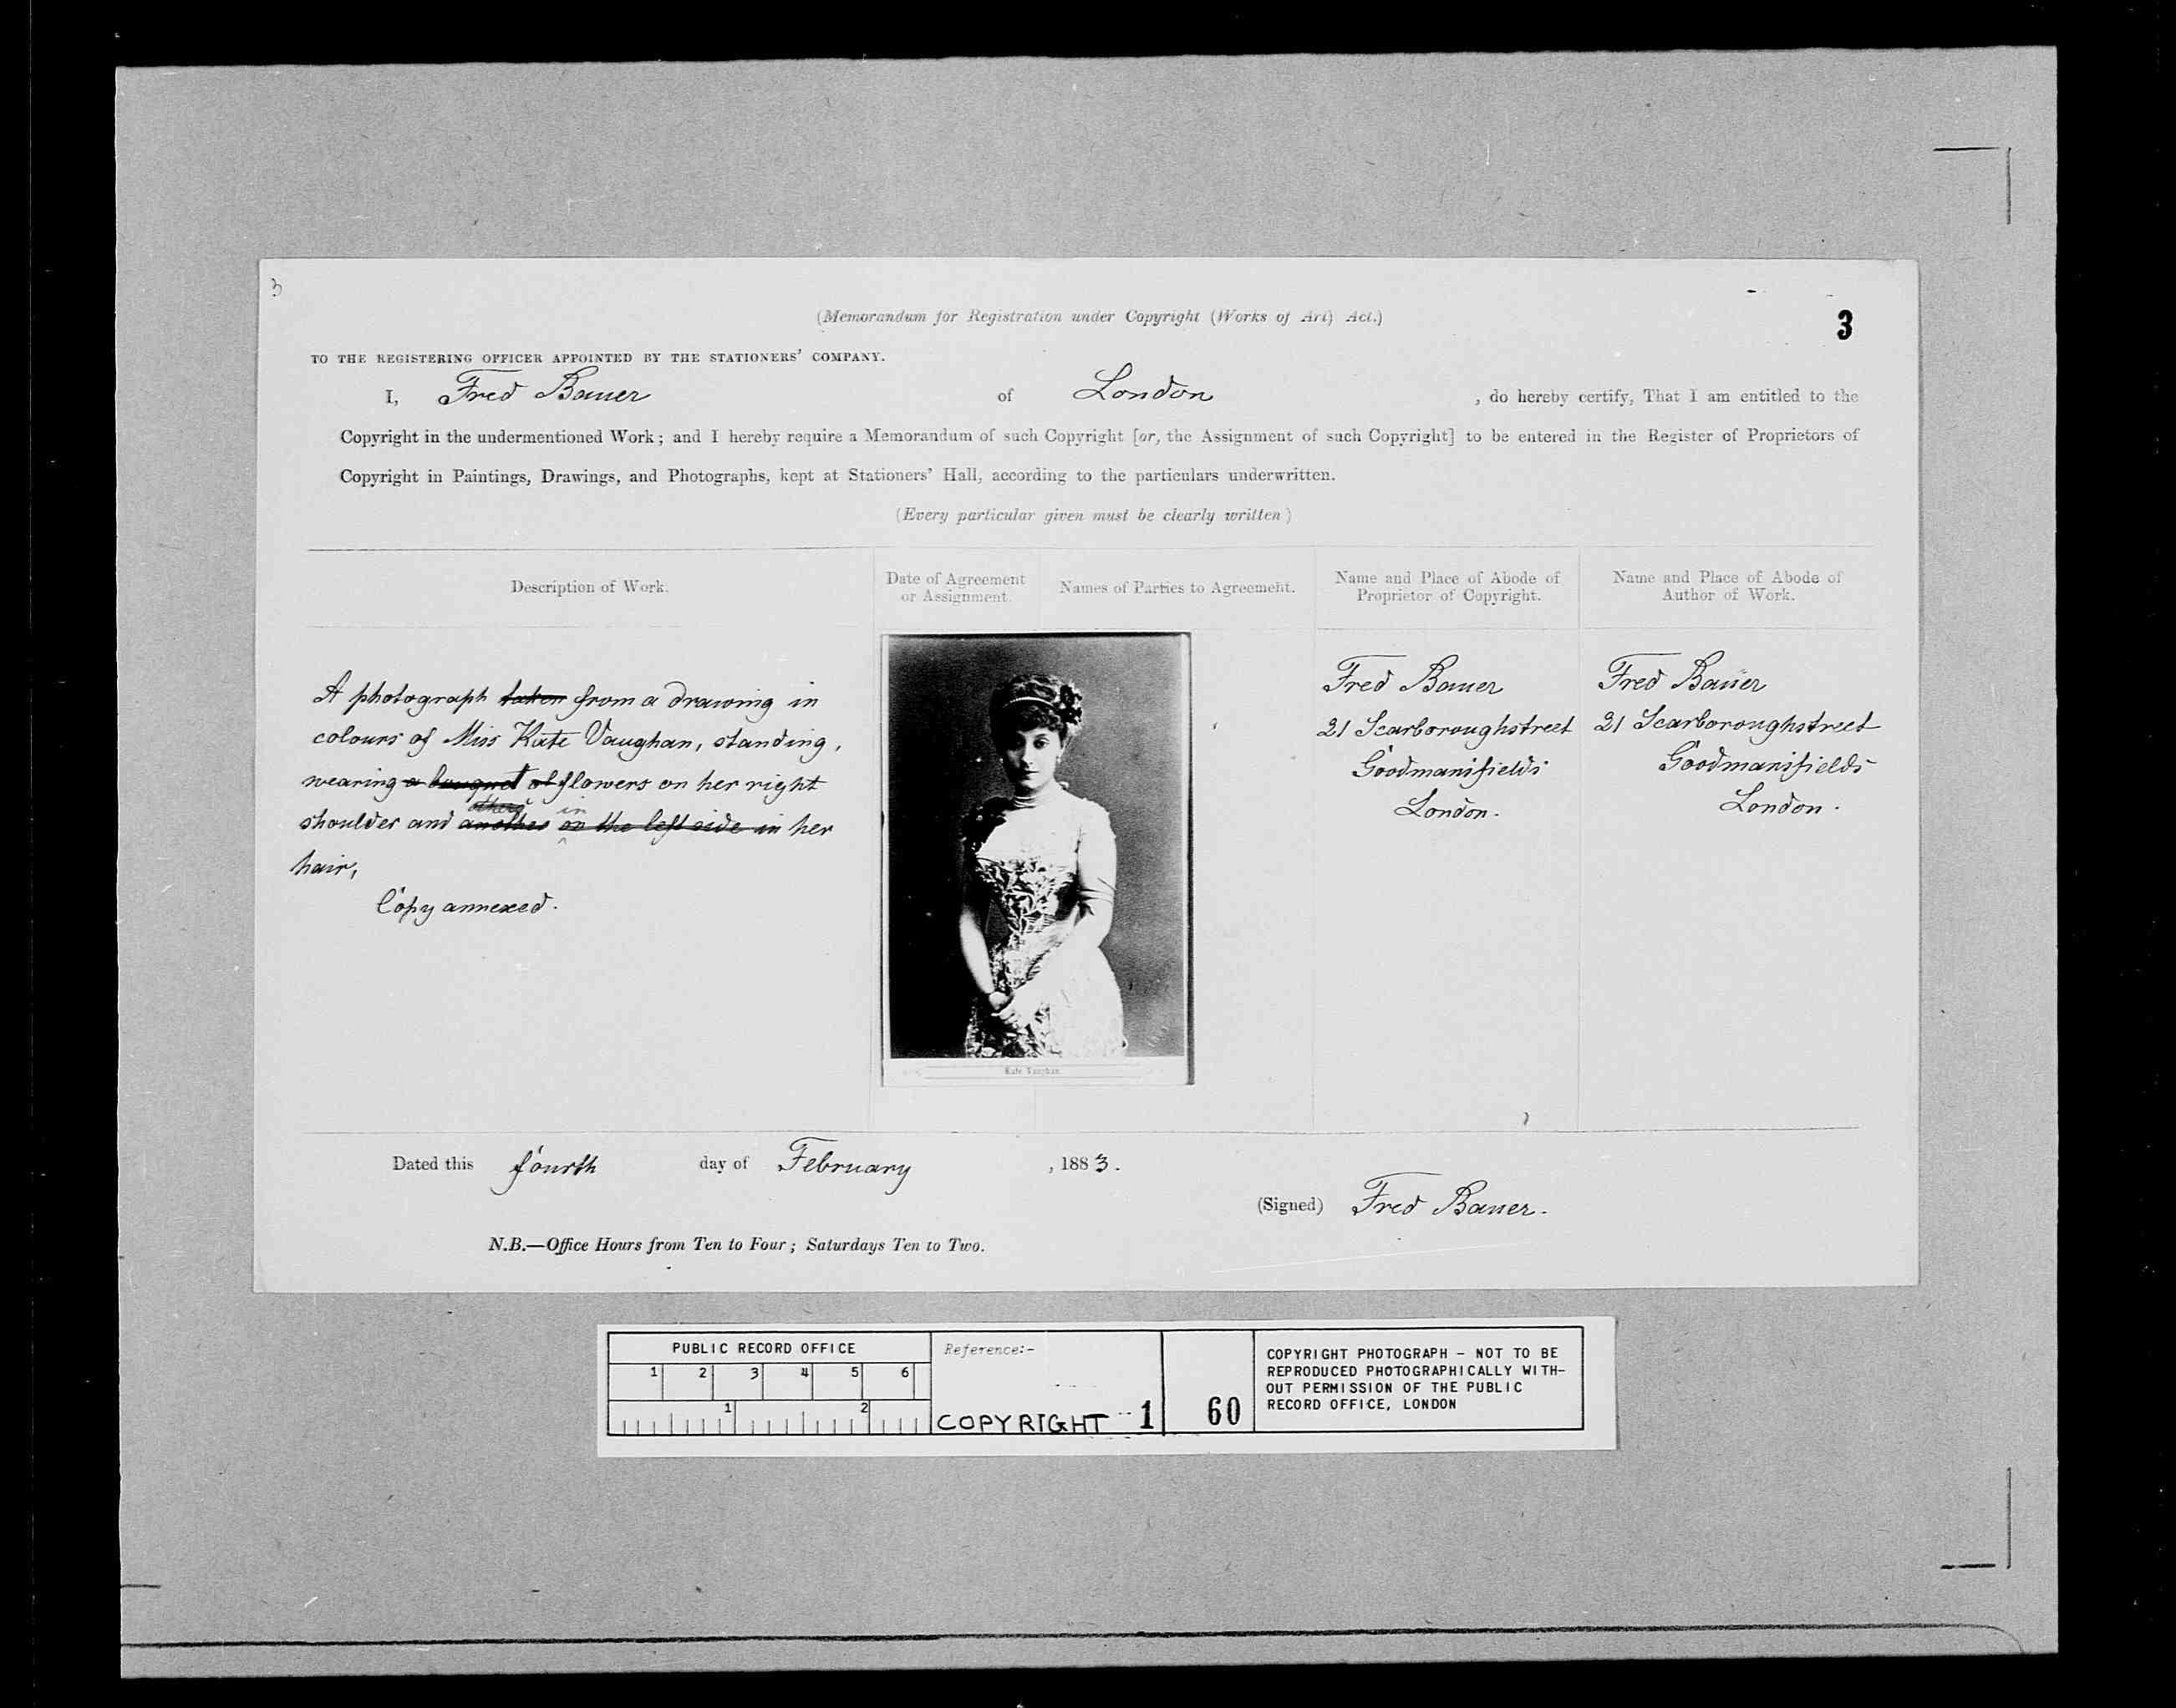 3
(Memorandum for Registration under Copyright (Works of Art) Act.)
3
TO THE REGISTERING OFFICER APPOINTED BY THE STATIONERS' COMPANY.
I, Fred Bauer of London , do hereby certify, That I am entitled to the
Copyright in the undermentioned Work; and I hereby require a Memorandum of such Copyright [or, the Assignment of such Copyright] to be entered in the Register of Proprietors of
Copyright in Paintings, Drawings, and Photographs, kept at Stationers' Hall, according to the particulars underwritten.
(Every particular given must be clearly written)
Description of Work.
Date of Agreement
or Assignment.
Names of Parties to Agreement.
Name and Place of Abode of
Proprietor of Copyright.
Name and Place of Abode of
Author of Work.
A photograph taken from a drawing in
colours of Miss Kate Vaughan, standing,
wearing a bouquet of flowers on her right
others in
shoulder and another on the left side in her
hair,
Copy annexed.
Kate Vaughan
Fred Bauer
21 Scarboroughstreet
Goodmansfields
London.
Fred Bauer
21 Scarboroughstreet
Goodmansfields
London.
Dated this fourth day of February , 1883.
(Signed) Fred Bauer.
N.B.—Office Hours from Ten to Four; Saturdays Ten to Two.
PUBLIC RECORD OFFICE
1 2 3 4 5 6
1 2
Reference:-
COPYRIGHT 1
60
COPYRIGHT PHOTOGRAPH - NOT TO BE
REPRODUCED PHOTOGRAPHICALLY WITH-
OUT PERMISSION OF THE PUBLIC
RECORD OFFICE, LONDON